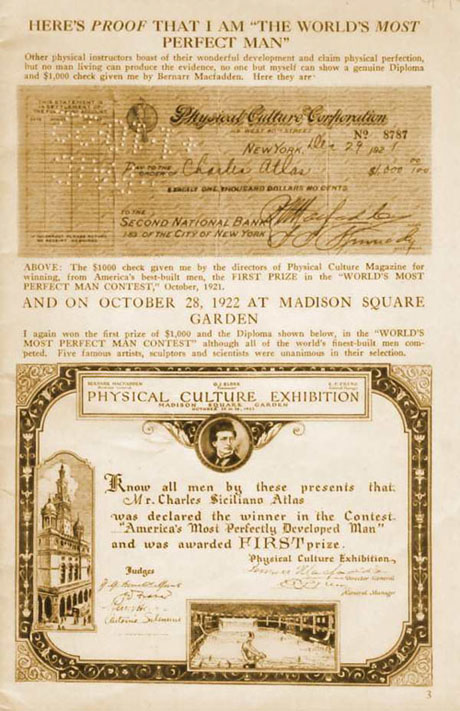 HERE'S PROOF THAT I AM "THE WORLD'S MOST
PERFECT MAN"
Other physical instructors boast of their wonderful development and claim physical perfection,
but no man living can produce the evidence, no one but myself can show a genuine Diploma
and $1,000 check given me by Bernarr Macfadden. Here they are
THIS STATEMENT IS
Physical Culture Corporation
Nº 8787
NEW YORK, Dec 29 192
PAY TO THE
ORDER Charles Atlas $1,000 00/100
EXACTLY ONE THOUSAND DOLLARS NO CENTS
TO THE
SECOND NATIONAL BANK
OF THE CITY OF NEW YORK
ABOVE: The $1000 check given me by the directors of Physical Culture Magazine for
winning, from America's best-built men, the FIRST PRIZE in the "WORLD'S MOST
PERFECT MAN CONTEST," October, 1921.
AND ON OCTOBER 28, 1922 AT MADISON SQUARE
GARDEN
I again won the first prize of $1,000 and the Diploma shown below, in the "WORLD'S
MOST PERFECT MAN CONTEST" although all of the world's finest-built men com-
peted. Five famous artists, sculptors and scientists were unanimous in their selection.
BERNARR MACFADDEN
PHYSICAL CULTURE EXHIBITION
MADISON SQUARE GARDEN
Know all men by these presents that
Mr. Charles Siciliano Atlas
was declared the winner in the Contest
"America's Most Perfectly Developed Man"
and was awarded FIRST prize.
Physical Culture Exhibition,
Judges
Director General
General Manager
3